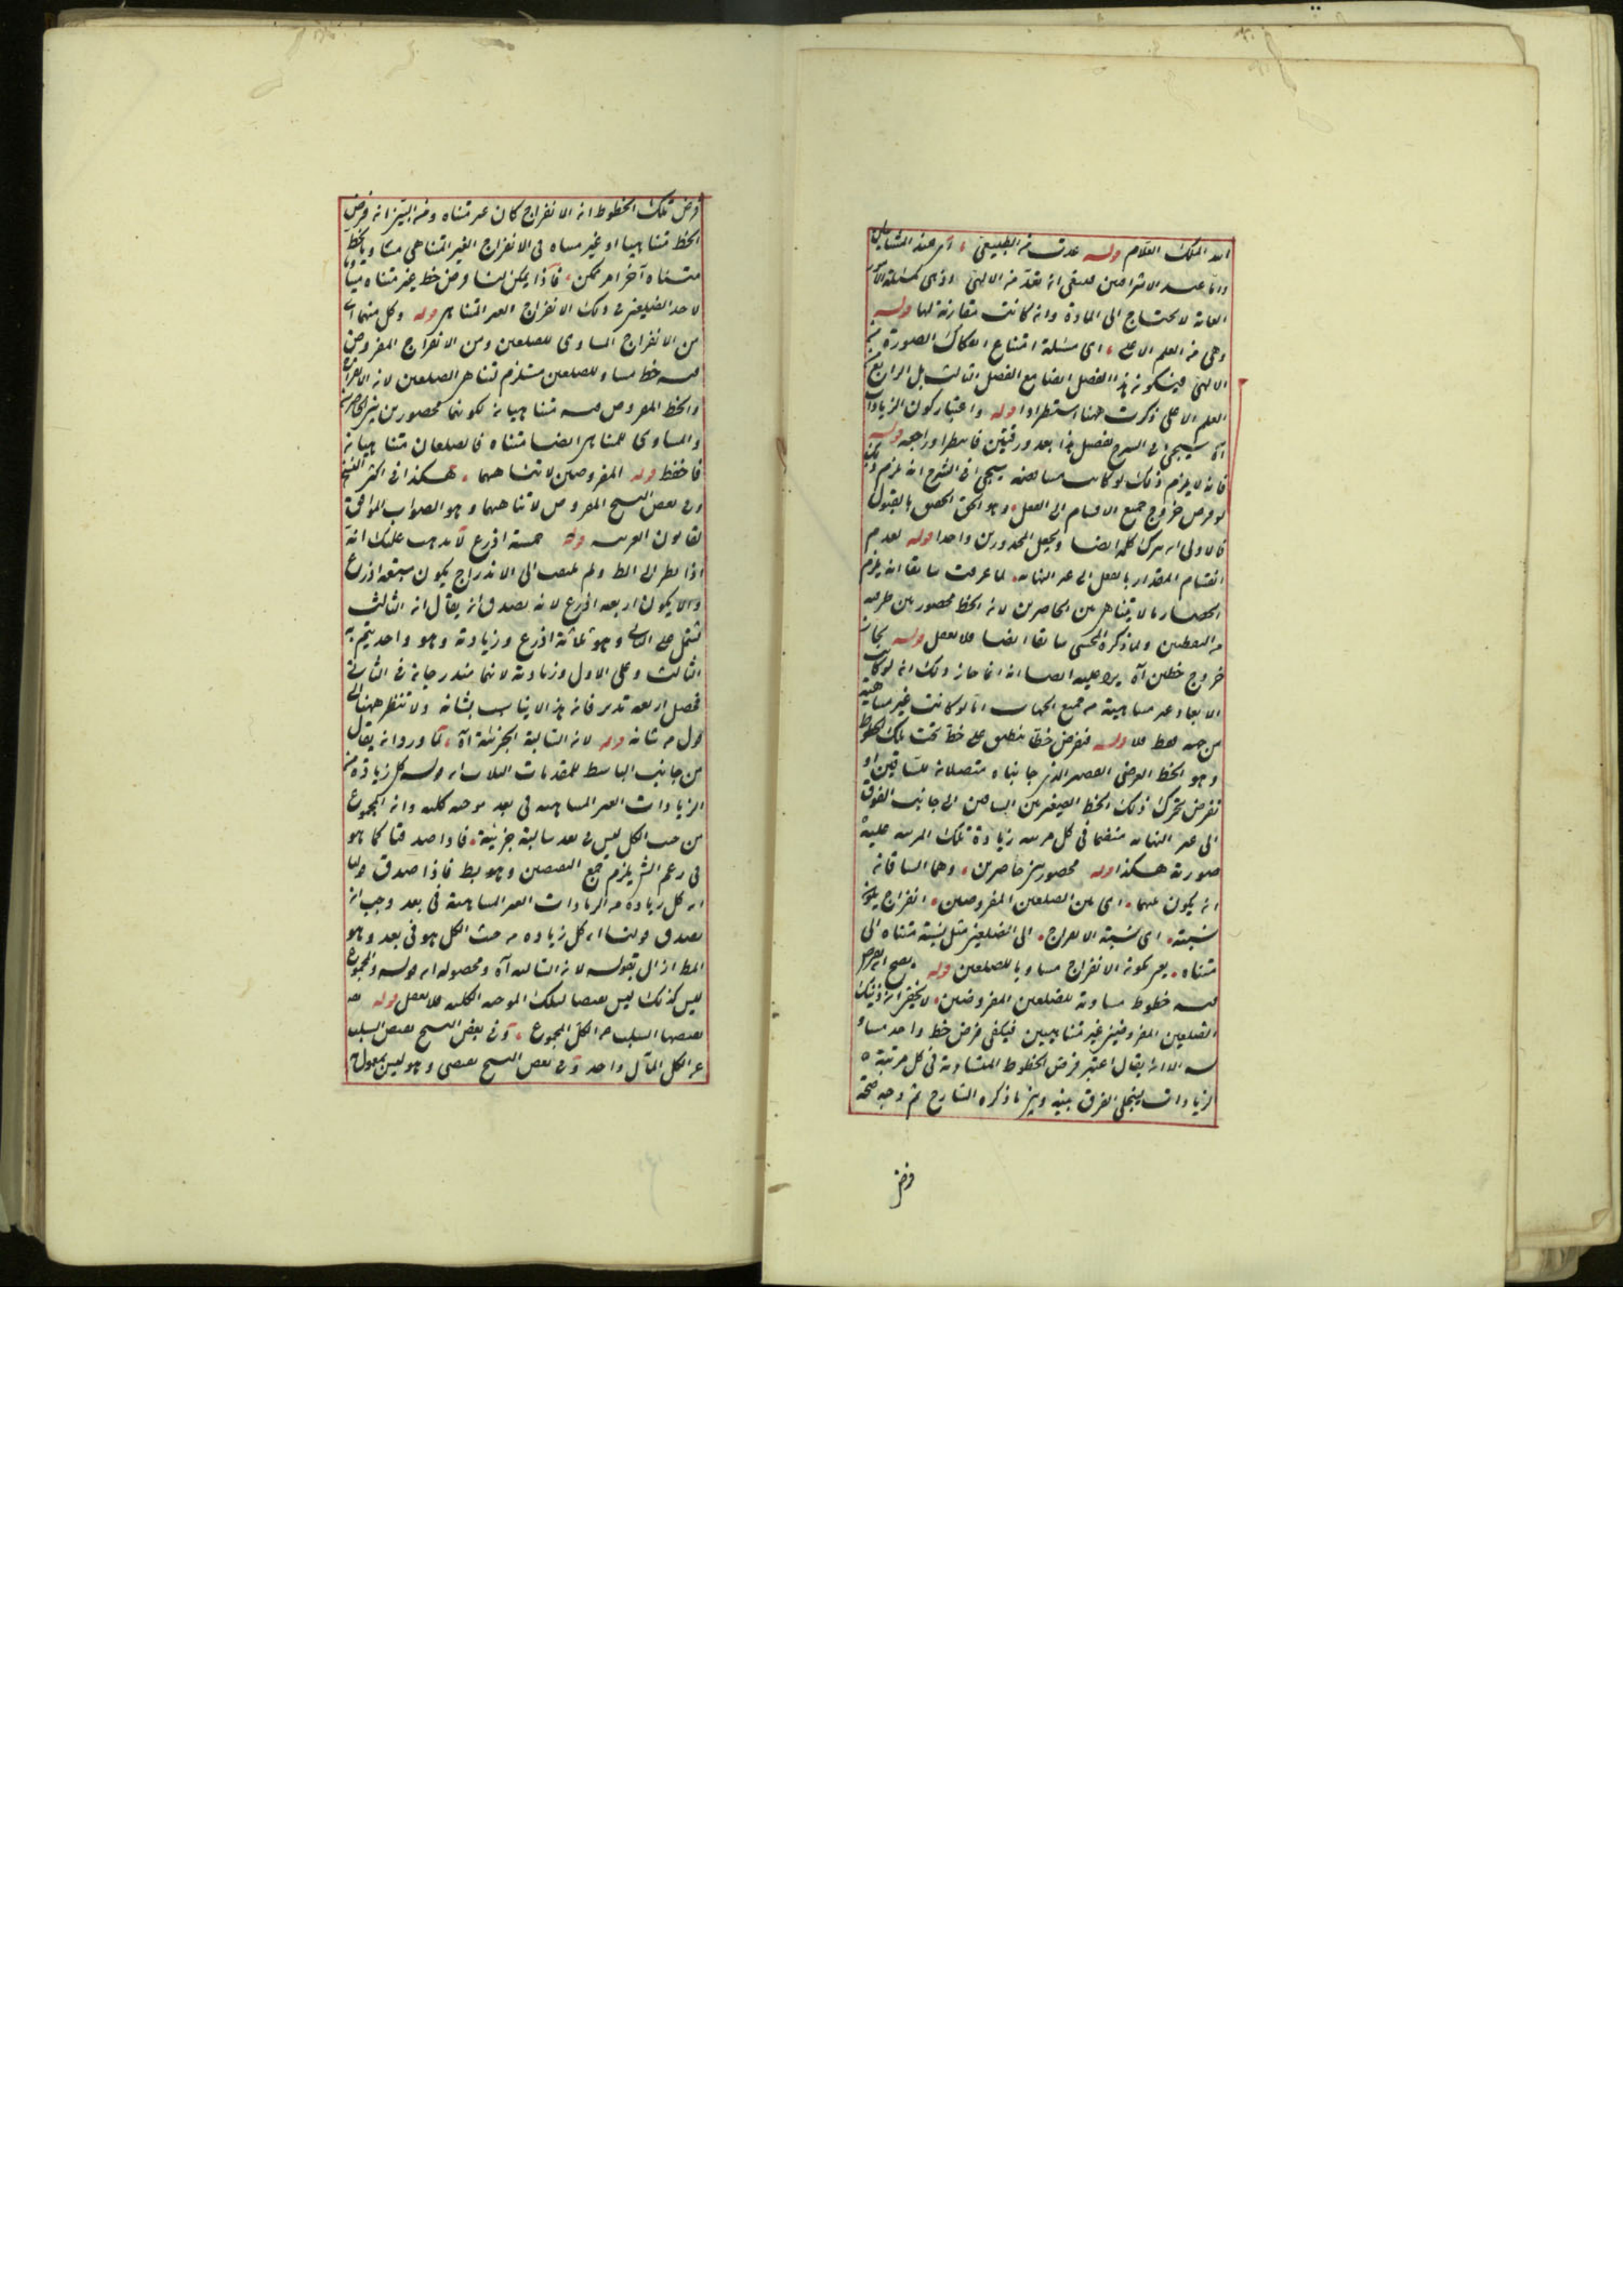 الله الملك العلام قوله عدت من الطبيعى ، اى عند المشائين
واما عند الاشراقيين فينبغى ان تعد من الالهى اذ هى كمسئلة الامور
العامة لا تحتاج الى المادة وان كانت مقارنة لها قوله
وهى من العلم الاعلى ، اى مسئلة امتناع انفكاك الصورة من
الالهى فيكون هذا الفصل ايضا مع الفصل الثالث بل الرابع من
العلم الاعلى ذكرت ههنا استطرادا قوله واعتبار كون الزيادات
آه سيجئ فى الشرح تفصيل هذا بعد ورقتين فانتظر او راجعه قوله
فانه لا يلزم ذلك لو كانت متناقصة سيجئ فى الشرح انه يلزم ذلك
لو فرض خروج جميع الاقسام الى الفعل ، وهو الحق الحقيق بالقبول
فالاولى ان يترك كلمة ايضا ويجعل المحذورين واحدا قوله لعدم
انقسام المقدار بالفعل الى غير النهاية ، لما عرفت سابقا انه يلزم
انحصار ما لا يتناهى بين الحاصرين لان الخط محصور بين طرفيه
من النقطتين ولما ذكره المحشى سابقا ايضا فلا تغفل قوله بجانب
خروج خطين آه يرد عليه ايضا انه انما جاز ذلك ان لو كانت
الابعاد غير متناهية من جميع الجهات اما لو كانت غير متناهية
من جهة فقط فلا قوله فنفرض خطا ينطبق على خط تحت تلك الخطوط
وهو الخط العرضى القصير الذى جانباه متصلان للساقين او
نفرض تحرك ذلك الخط الصغير بين الساقين الى جانب الفوق
الى غير النهاية منضما فى كل مرتبة زيادة تلك المرتبة عليه
صورته هكذا قوله محصور بين حاصرين ، وهما الساقان
ان يكون بينهما ، اى بين الضلعين المفروضين ، انفراج يكون
نسبته ، اى نسبة الانفراج ، الى الضلعين مثل نسبة متناه الى
متناه ، يعنى بكونه الانفراج مساويا للضلعين قوله يصح ان يفرض
فيه خطوط مساوية للضلعين المفروضين ، لا يخفى ان ذينك
الضلعين المفروضين غير متناهيين فيكفى فرض خط واحد مساو
له الا ان يقال اعتبر فرض الخطوط المتساوية فى كل مرتبة
الزيادات لينجلى الفرق بينه وبين ما ذكره الشارح ثم وجه صحة
فرض
فرض تلك الخطوط ان الانفراج كان غير متناه ومن البين ان فرض
الخط متناهيا او غير متناه فى الانفراج الغير المتناهى مساويا لخط
متناه آخر امر ممكن ، فاذا يمكن لنا فرض خط غير متناه مساويا
لاحد الضلعين فى ذلك الانفراج الغير المتناهى قوله وكل منهما اى
من الانفراج المساوى للضلعين ومن الانفراج المفروض
فيه خط مساو للضلعين مستلزم لتناهى الضلعين لان الانفراج
والخط المفروض فيه متناهيان لكونهما محصورين بين الحاصرين
والمساوى للمتناهى ايضا متناه فالضلعان متناهيان
فاحفظ قوله المفروضين لا تناهيهما ، هكذا فى اكثر النسخ
وفى بعض النسخ المفروض لا تناهيهما وهو الصواب الموافق
لقانون العربية قوله خمسة اذرع لا يذهب عليك انه
اذا نظر الى الخط ولم يلتفت الى الاندراج يكون سبعة اذرع
والا يكون اربعة اذرع لانه يصدق ان يقال ان الثالث
يشتمل على الثانى وهو ثلاثة اذرع وزيادته وهو واحد يتم به
الثالث وعلى الاول وزيادته لانهما مندرجان فى الثانى
فحصل اربعة تدبر فانه هذا لا يناسب بشانه ولا تنتظر ههنا الى
قول من شانه قوله لان السالبة الجزئية آه ، لما ورد انه يقال
من جانب الباسط للمقدمات الثلاث ان قوله كل زيادة من
الزيادات الغير المتناهية فى بعد موجبة كلية وان المجموع
من حيث الكل ليس فى بعد سالبة جزئية ، فاذا صدقتا كما هو
فى زعم الشارح يلزم جمع النقيضين وهو بط فاذا صدق قولنا
ان كل زيادة من الزيادات الغير المتناهية فى بعد وجب ان
يصدق قولنا ان كل زيادة من حيث الكل هو فى بعد وهو
المط ازال بقوله لان السالبة آه ومحصوله ان قوله والمجموع
ليس كذلك ليس نقيضا لتلك الموجبة الكلية فلا تغفل قوله
نقيضها السلب عن الكل المجموع ، وفى بعض النسخ نقيض السلب
عن الكل المآل واحد وفى بعض النسخ نقيضى وهو ليس بمعول